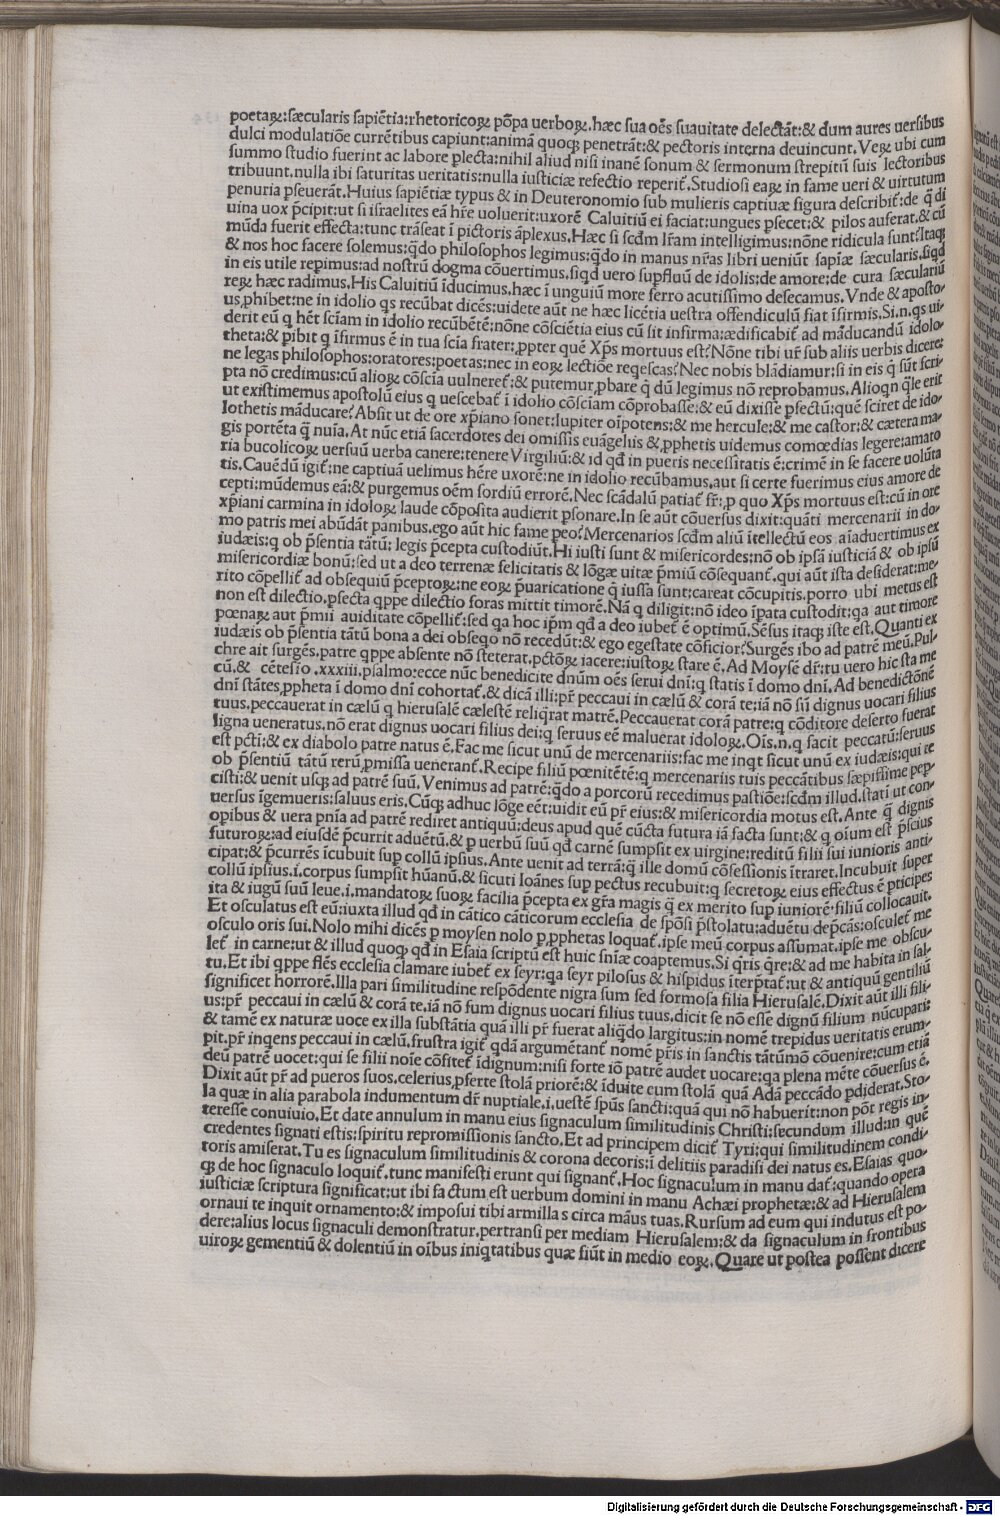 poetaꝝ:sæcularis sapiẽtia:rhetoricoꝝ põpa uerboꝝ.hæc sua oẽs suauitate delectãt:& dum aures uersibus
dulci modulatiõe currẽtibus capiunt:animã quoqꝫ penetrãt:& pectoris interna deuincunt.Veꝝ ubi cum
summo studio fuerint ac labore plecta:nihil aliud nisi inanẽ sonum & sermonum strepitũ suis lectoribus
tribuunt.nulla ibi saturitas ueritatis:nulla iusticiæ refectio reperit᷑.Studiosi eaꝝ in fame ueri & uirtutum
penuria ꝑseuerãt.Huius sapiẽtiæ typus & in Deuteronomio sub mulieris captiuæ figura describit᷑:de q̃ di
uina uox p̃cipit:ut si israelites eã hr̃e uoluerit:uxorẽ Caluitiũ ei faciat:ungues ꝑsecet:& pilos auferat.& cũ
mũda fuerit effecta:tunc trãseat ĩ pictoris ãplexus.Hæc si scd̃m lr̃am intelligimus:nõne ridicula sunt?Itaqꝫ
& nos hoc facere solemus:q̃do philosophos legimus:q̃do in manus nr̃as libri ueniũt sapiæ sæcularis.siqd
in eis utile repimus:ad nostrũ dogma cõuertimus.siqd uero supfluũ de idolis:de amore:de cura sæculariũ
reꝝ hæc radimus.His Caluitiũ ĩducimus.hæc ĩ unguiũ more ferro acutissimo desecamus.Vnde & aposto-
us,ꝓhibet:ne in idolio qs recũbat dicẽs:uidete aũt ne hæc licẽtia uestra offendiculũ fiat ĩfirmis.Si.n.qs ui-
derit eũ q hẽt sciam in idolio recũbẽtẽ:nõne cõsciẽtia eius cũ sit infirma:ædificabit᷑ ad mãducandũ idolo
theta:& pibit q ĩfirmus ẽ in tua scia frater:ꝓpter quẽ Xp̃s mortuus est?Nõne tibi ur̃ sub aliis uerbis dicere:
ne legas philosophos:oratores:poetas:nec in eoꝝ lectiõe reqescas?Nec nobis blãdiamur:si in eis q̃ sũt scri-
pta nõ credimus:cũ alioꝝ cõscia uulneret᷑:& putemur ꝓbare q̃ dũ legimus nõ reprobamus.Alioqn q̃le erit
ut existimemus apostolũ eius q uescebat᷑ ĩ idolio cõsciam cõprobasse:& eũ dixisse ꝑfectũ:quẽ sciret de ido-
lothetis mãducare?Absit ut de ore xp̃iano sonet:Iupiter oĩpotens:& me hercule:& me castor:& cætera ma-
gis portẽta q̃ nuĩa.At nũc etiã sacerdotes dei omissis euãgeliis & ꝓphetis uidemus comœdias legere:amato
ria bucolicoꝝ uersuũ uerba canere:tenere Virgiliũ:& id qd̃ in pueris necessitatis ẽ:crimẽ in se facere uolũta
tis.Cauẽdũ igit᷑:ne captiuã uelimus hẽre uxorẽ:ne in idolio recũbamus.aut si certe fuerimus eius amore de
cepti:mũdemus eã:& purgemus oẽm sordiũ errorẽ.Nec scãdalũ patiat᷑ fr̃:ꝑ quo Xp̃s mortuus est:cũ in ore
xp̃iani carmina in idoloꝝ laude cõposita audierit ꝑsonare.In se aũt cõuersus dixit:quãti mercenarii in do-
mo patris mei abũdãt panibus.ego aũt hic fame peo?Mercenarios scd̃m aliũ ĩtellectũ eos aĩaduertimus ex
iudæis:q ob p̃sentia tãtũ: legis p̃cepta custodiũt.Hi iusti sunt & misericordes:nõ ob ipsã iusticiã & ob ipsũ
misericordiæ bonũ:sed ut a deo terrenæ felicitatis & lõgæ uitæ p̃miũ cõsequant᷑.qui aũt ista desiderat:me-
rito cõpellit᷑ ad obsequiũ p̃ceptoꝝ:ne eoꝝ p̃uaricatione q̃ iussa sunt:careat cõcupitis.porro ubi metus est
non est dilectio.ꝑfecta qppe dilectio foras mittit timorẽ.Nã q diligit:nõ ideo ĩpata custodit:qa aut timore
pœnaꝝ aut p̃mii auiditate cõpellit᷑:sed qa hoc ip̃m qd̃ a deo iubet᷑ ẽ optimũ.Sẽsus itaqꝫ iste est.Quanti ex
iudæis ob p̃sentia tãtũ bona a dei obseqo nõ recedũt:& ego egestate cõficior?Surgẽs ibo ad patrẽ meũ.Pul-
chre ait surgẽs.patre qppe absente nõ steterat.pctõꝝ iacere:iustoꝝ stare ẽ.Ad Moysẽ dr̃:tu uero hic sta me
cũ.& cẽtesio.xxxiii.psalmo:ecce nũc benedicite dnũm oẽs serui dnĩ:q statis ĩ domo dnĩ.Ad benedictõnẽ
dnĩ stãtes,ꝓpheta ĩ domo dnĩ cohortat᷑.& dicã illi:pr̃ peccaui in cælũ & corã te:iã nõ sũ dignus uocari filius
tuus.peccauerat in cælũ q hierusalẽ cælestẽ reliq̃rat matrẽ.Peccauerat corã patre:q cõditore deserto fuerat
ligna ueneratus.nõ erat dignus uocari filius dei:q seruus eẽ maluerat idoloꝝ.Oĩs.n.q facit peccatũ:seruus
est pctĩ:& ex diabolo patre natus ẽ.Fac me sicut unũ de mercenariis:fac me inqt sicut unũ ex iudæis:qui te
ob p̃sentiũ tãtũ rerũ,ꝓmissa uenerant᷑.Recipe filiũ pœnitẽtẽ:q mercenariis tuis peccãtibus sæpissime pep-
cisti:& uenit usqꝫ ad patrẽ suũ.Venimus ad patrẽ:q̃do a porcorũ recedimus pastiõe:scd̃m illud.statĩ ut con-
uersus ĩgemueris:saluus eris.Cũqꝫ adhuc lõge eẽt:uidit eũ pr̃ eius:& misericordia motus est.Ante q̃ dignis
opibus & uera pnĩa ad patrẽ rediret antiquũ:deus apud quẽ cũcta futura iã facta sunt:& q oĩum est p̃scius
futuroꝝ:ad eiusdẽ p̃currit aduẽtũ.& p uerbũ suũ qd̃ carnẽ sumpsit ex uirgine:reditũ filii sui iunioris anti-
cipat:& p̃currẽs ĩcubuit sup collũ ipsius.Ante uenit ad terrã:q̃ ille domũ cõfessionis ĩtraret.Incubuit super
collũ ipsius.i.corpus sumpsit hũanũ.& sicuti Ioãnes sup pectus recubuit:q secretoꝝ eius effectus ẽ pticipes
ita & iugũ suũ leue.i.mandatoꝝ suoꝝ facilia p̃cepta ex gr̃a magis q̃ ex merito sup iuniorẽ filiũ collocauit.
Et osculatus est eũ:iuxta illud qd̃ in cãtico cãticorum ecclesia de spõsi p̃stolatu:aduẽtu dep̃cãs:osculet᷑ me
osculo oris sui.Nolo mihi dicẽs p moysen nolo p,ꝓphetas loquat᷑.ipse meũ corpus assumat.ipse me obscu-
let᷑ in carne:ut & illud quoqꝫ qd̃ in Esaia scriptũ est huic sniæ coaptemus.Si q̃ris q̃re:& ad me habita in sal-
tu.Et ibi qppe flẽs ecclesia clamare iubet᷑ ex seyr:qa seyr pilosus & hispidus ĩterp̃tat᷑:ut & antiquũ gentiliũ
significet horrorẽ.Illa pari similitudine respõdente nigra sum sed formosa filia Hierusalẽ.Dixit aũt illi fili-
us:pr̃ peccaui in cælũ & corã te.iã nõ sum dignus uocari filius tuus.dicit se nõ esse dignũ filium nũcupari:
& tamẽ ex naturæ uoce ex illa substãtia quã illi pr̃ fuerat aliq̃do largitus:in nomẽ trepidus ueritatis erum-
pit.pr̃ inqens peccaui in cælũ.frustra igit᷑ qdã argumẽtant᷑ nomẽ pr̃is in sanctis tãtũmõ cõuenire:cum etiã
deũ patrẽ uocet:qui se filii noĩe cõfitet᷑ ĩdignum:nisi forte iõ patrẽ audet uocare:qa plena mẽte cõuersus ẽ.
Dixit aũt pr̃ ad pueros suos.celerius,ꝓferte stolã priorẽ:& ĩduite eum stolã quã Adã peccãdo pdiderat.Sto-
la quæ in alia parabola indumentum dr̃ nuptiale.i.uestẽ spũs sancti:quã qui nõ habuerit:non põt regis in-
teresse conuiuio.Et date annulum in manu eius signaculum similitudinis Christi:secundum illud:in quẽ
credentes signati estis:spiritu repromissionis sancto.Et ad principem dicit᷑ Tyri:qui similitudinem condi-
toris amiserat.Tu es signaculum similitudinis & corona decoris:ĩ delitiis paradisi dei natus es.Esaias quo-
qꝫ de hoc signaculo loquit᷑.tunc manifesti erunt qui signant᷑.Hoc signaculum in manu dat᷑:quando opera
iusticiæ scriptura significat:ut ibi factum est uerbum domini in manu Achæi prophetæ:& ad Hierusalema
ornaui te inquit ornamento:& imposui tibi armilla s circa mãus tuas.Rursum ad eum qui indutus est po-
dere:alius locus signaculi demonstratur.pertransi per mediam Hierusalem:& da signaculum in frontibus
uiroꝝ gementiũ & dolentiũ in oĩbus iniq̃tatibus quæ fiũt in medio eoꝝ.Quare ut postea possent dicere
Digitalisierung gefördert durch die Deutsche Forschungsgemeinschaft - DFG